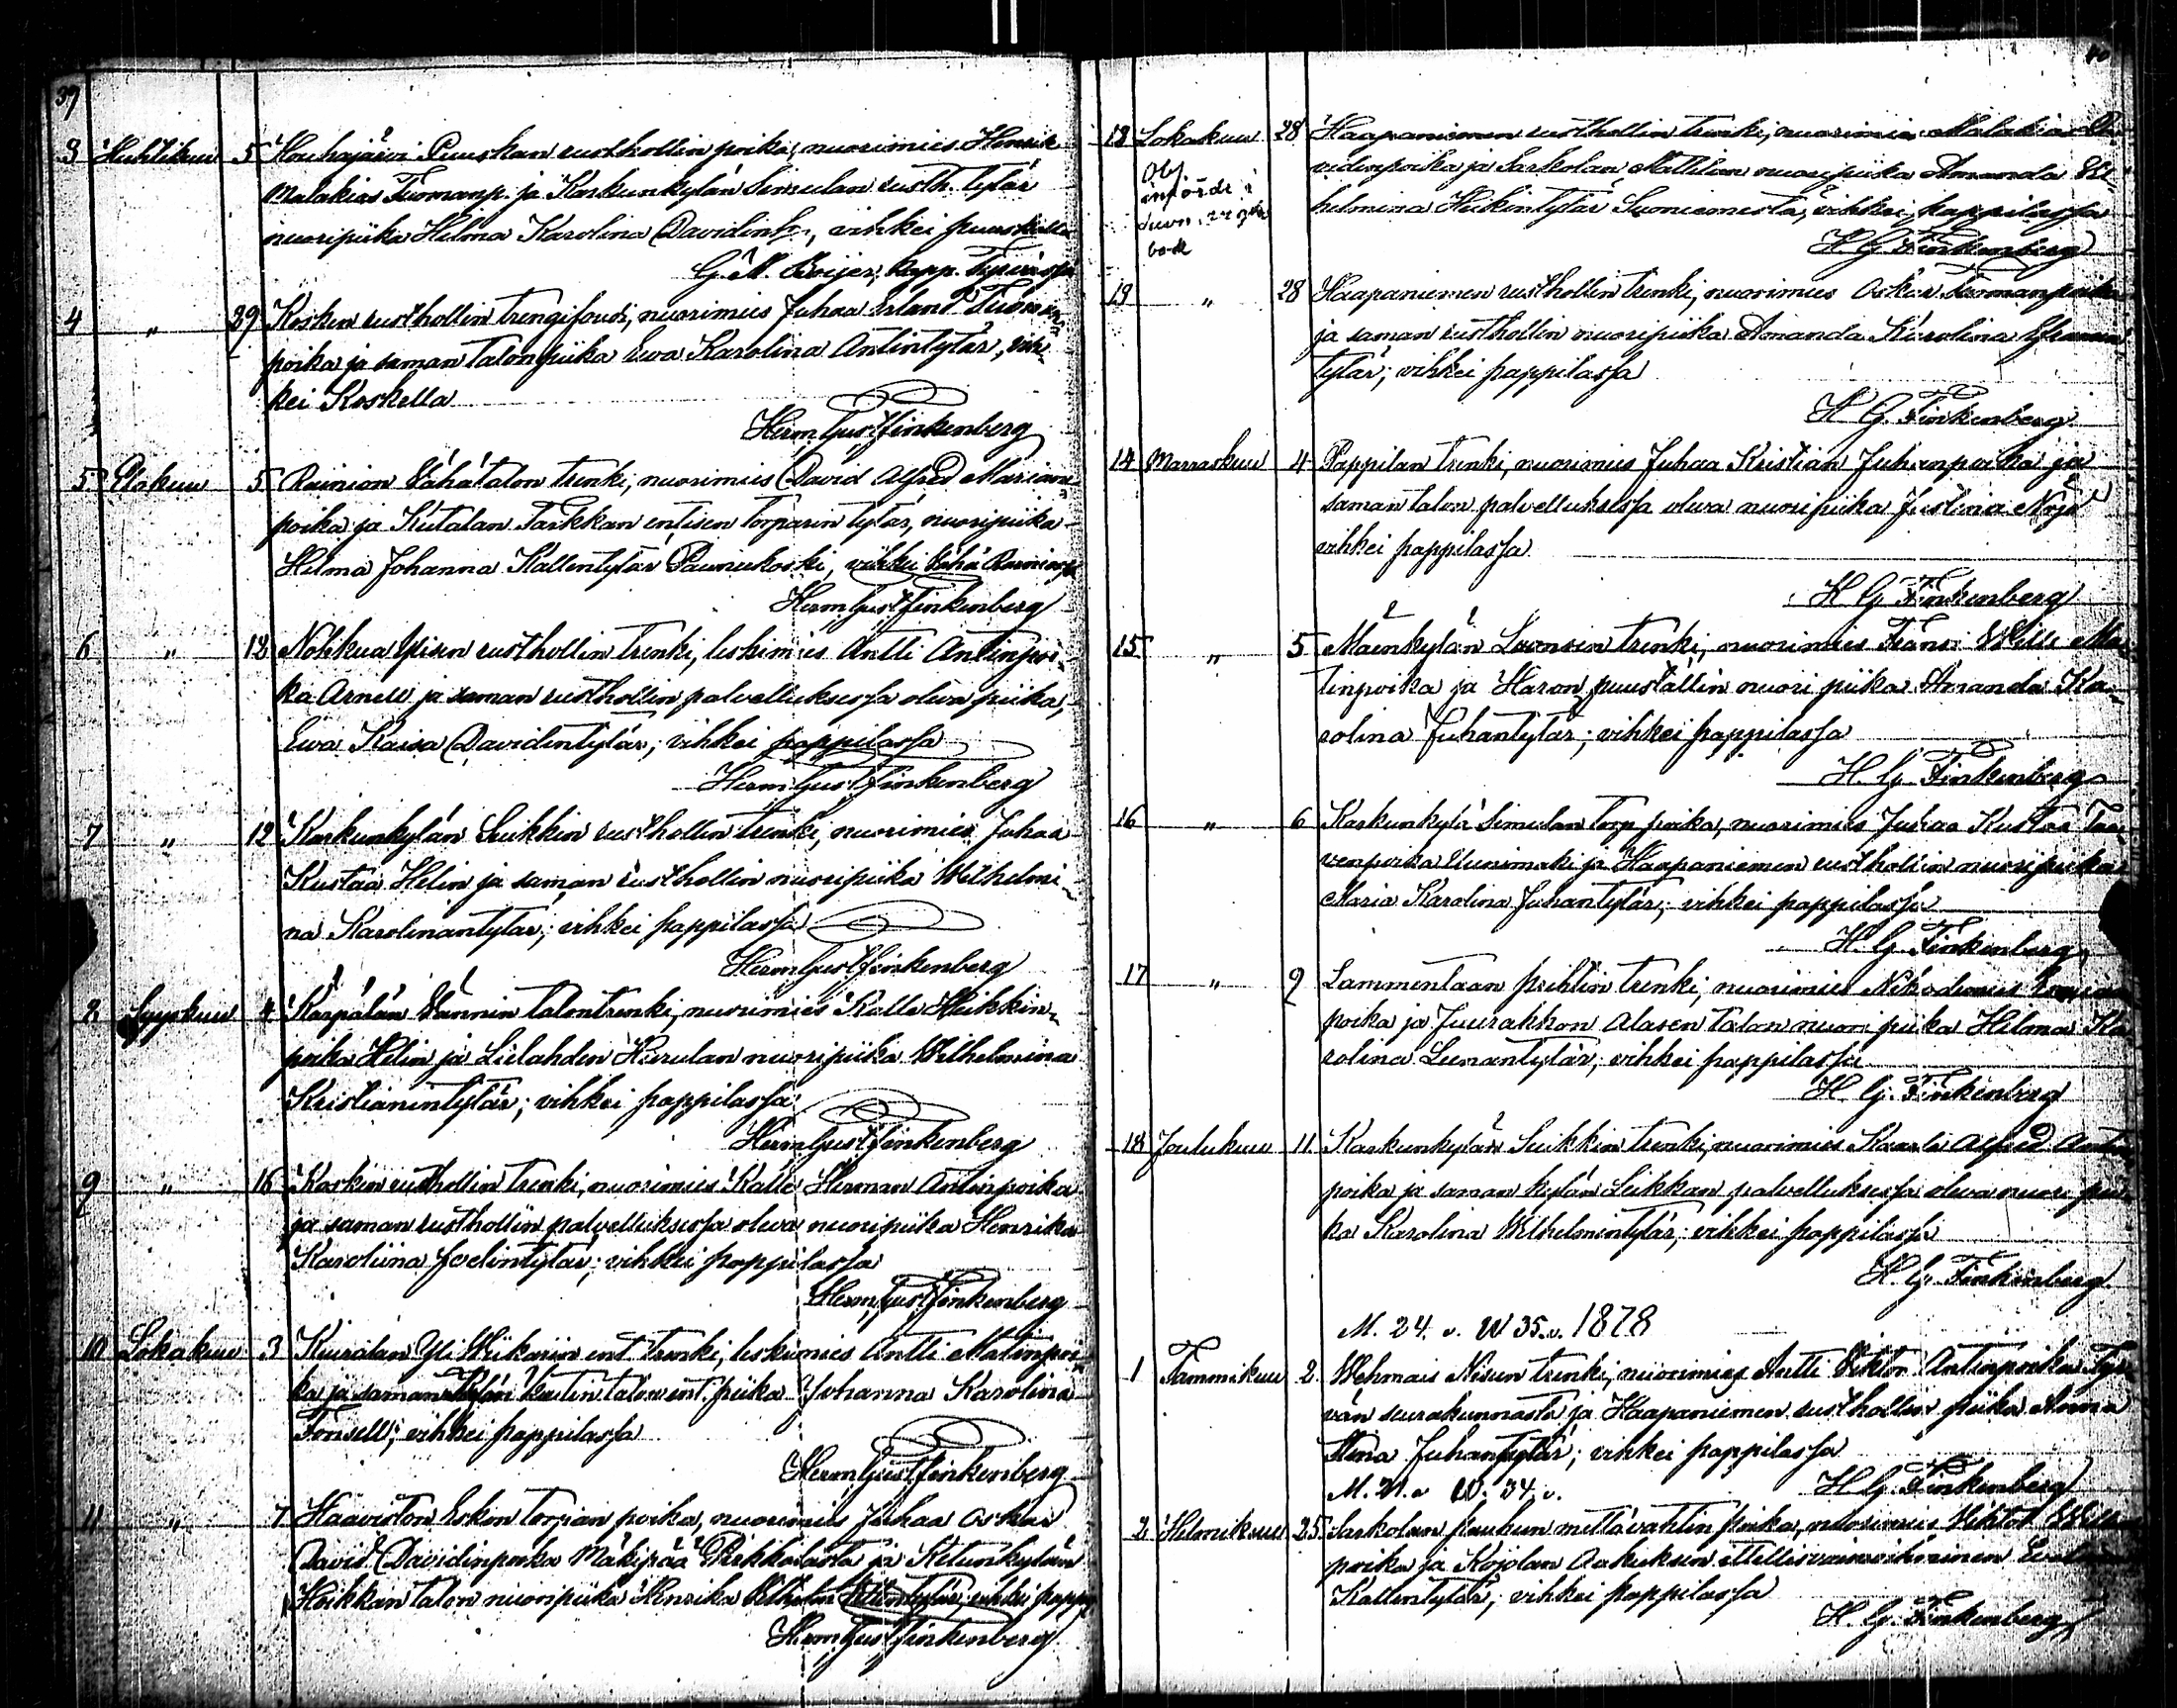 39
3 Huhtikuu 5 Houhajärvi Puuskan rusthollin poika, nuorimies Henrik
Malakias Tuomanp. ja Karkunkylän Simulan rusth. tytär
nuoripiika Helma Karolina Davidint., vihkei Puuskalla
G. A. Boijer, kapp.
4 " 29 Kosken rusthollin trengifouti, nuorimies Juhaa Erland Tuoman
poika ja saman talon piika Ewa Karolina Antintytär, vih
kei Koskella
Herm Gust Finkenberg
5 Elokuu 5 Rainion Vähätalon trenki, nuorimies David Alfred Marian
poika ja Kutalan Tarkkan entisen torparin tytär, nuoripiika
Helma Johanna Kallentytär, vihkei Vähä Rainiossa
Herm Gust Finkenberg
6 " 12 Nohkua Ylisen rusthollin trenki, leskimies Antti Antinpoi-
ka Arnell ja saman rusthollin palvelluksessa olewa piika,
Ewa Kaisa Davidintytär; vihkei pappilassa
Herm Gust Finkenberg
7 " 12 Karkunkylän Luikkin rusthollin trenki, nuorimies Juhaa
Kustaa Helin ja saman rusthollin nuoripiika Wilhelmi-
na Karolinantytär; vihkei pappilassa
Herm Gust Finkenberg
8 Syyskuu 4 Kärpälän Wännin talon trenki, nuorimies Kalle Heikkin-
poika Helin ja Lielahden nuoripiika Wilhelmina
Kristianintytär; vihkei pappilassa
Herm Gust Finkenberg
9 " 16 Kosken rusthollin trenki, nuorimies Kalle Herman Antinpoika
ja saman rusthollin palvelluksessa olewa nuoripiika Henrika
Karoliina Joelintytär; vihkei pappilassa
Herm Gust Finkenberg
10 Lokakuu 3 Kiurälan Yli Wiikarin ent. trenki, leskimies Antti Matinpoi-
ka ja saman kylän talon ent. piika Johanna Karolina
Fonsell; vihkei pappilassa
Herm Gust Finkenberg
11 " 7 Haaviston Eskon torpan poika, nuorimies Juhaa Oskar
David Davidinpoika Mäkipää Pirkkalasta ja Kutunkylän
Heikkan talon nuoripiika Henrika vihkei papp.
Herm Gust Finkenberg
12 Lokakuu 28 Haapaniemen rusthollin trenki, nuorimies Malakias Da-
vidinpoika ja Sarkolan Mattilan nuoripiika Amanda Wil-
helmina Heikintytär Suoniemestä, vihkei pappilassa
H. G. Finkenberg
Obs
införde i
bok
13 " 28 Haapaniemen rusthollin trenki, nuorimies Oskar Tuomanpoika
ja saman rusthollin nuoripiika Amanda Karolina
tytär; vihkei pappilassa
H G. Finkenberg
14 Marraskuu 4 Pappilan trenki, nuorimies Juhaa Kristian Juhanpoika ja
saman talon palvelluksessa olewa nuoripiika Justina
vihkei pappilassa
H G Finkenberg
15 " 5 Mäenkylän trenki, nuorimies Frans Wille Ma-
tinpoika ja Haron puustallin nuori piika Amanda Ka-
rolina Juhantytär; vihkei pappilassa
H. G. Finkenberg
16 " 6 Karkunkylä Simulan torp. poika, nuorimies Juhaa Kustaa Taa-
venpoika ja Haapaniemen rusthollin nuoripiika
Maria Karolina Juhantytär; vihkei pappilassa
H. G. Finkenberg
17 " 9 Lammentaan trenki, nuorimies Nikodemus
poika ja Juurakkon Alasen talon nuori piika Helma Ka
rolina Leenantytär; vihkei pappilassa
H. G. Finkenberg
18 Joulukuu 11. Karkunkylän Luikkin trenki, nuorimies Kaarle Alfred Antin
poika ja saman kylän Luikkan palvelluksessa olewa nuori pii-
ka Karolina Wilhelmintytär; vihkei pappilassa
H. G. Finkenberg
M. 24. v. W 35. v. 1878
1 Tammikuu 2. Wehmais Nisun trenki, nuorimies Antti Viktor Antinpoika Tyr-
vän seurakunnasta ja Haapaniemen rusthollin piika Anna
Stina Juhantytär; vihkei pappilassa
M. 21. v W. 34. v. H G. Finkenberg
2 Helmikuu 25. Sarkolan mettävahtin poika, nuorimies Wihtori
poika ja Kojolan ittellisvaimoihminen
Kallentytär; vihkei pappilassa
H. G. Finkenberg